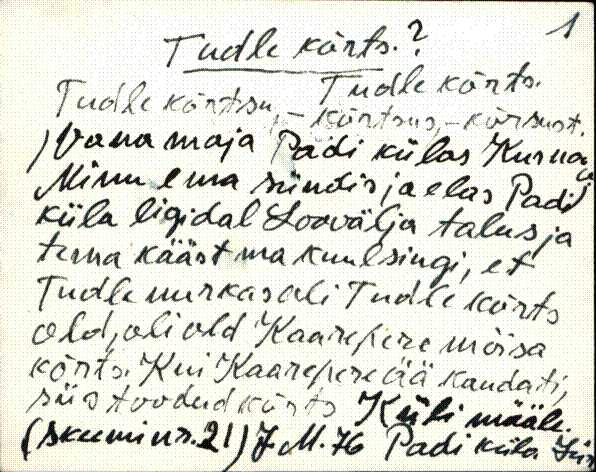 1
Tudle kõrts.?
Tudle kõrts.
Tudle kõrtsu, - kõrtsus, - kõrsust.
(Vana maja Padi külas Kurnag)
Minu ema sündis ja elas Padi
küla ligidal Loovälja talus ja
tema käást ma kuulsingi, et
Tudle nurkas oli Tudle kõrts
old, oli old Kaarepere mõisa
kõrts. Kui Kaarepere ää kaudati,
siis toodud kõrts Küti määle.
(skeemi nr. 21) J. M. 76 Padi küla